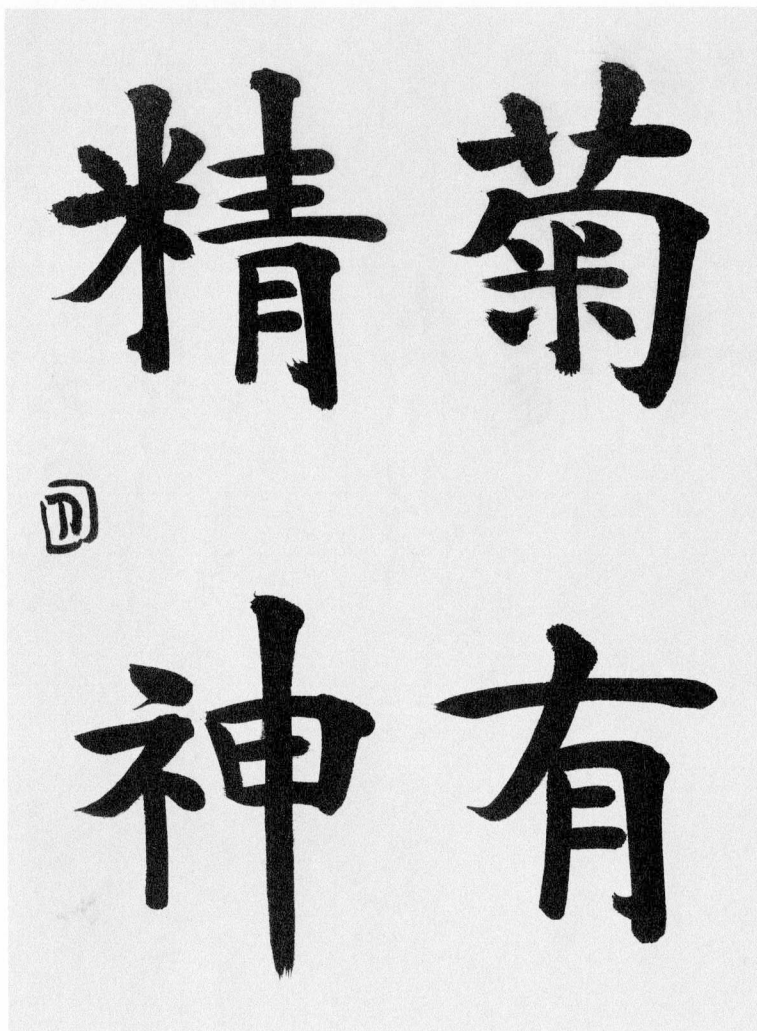 菊有
精神